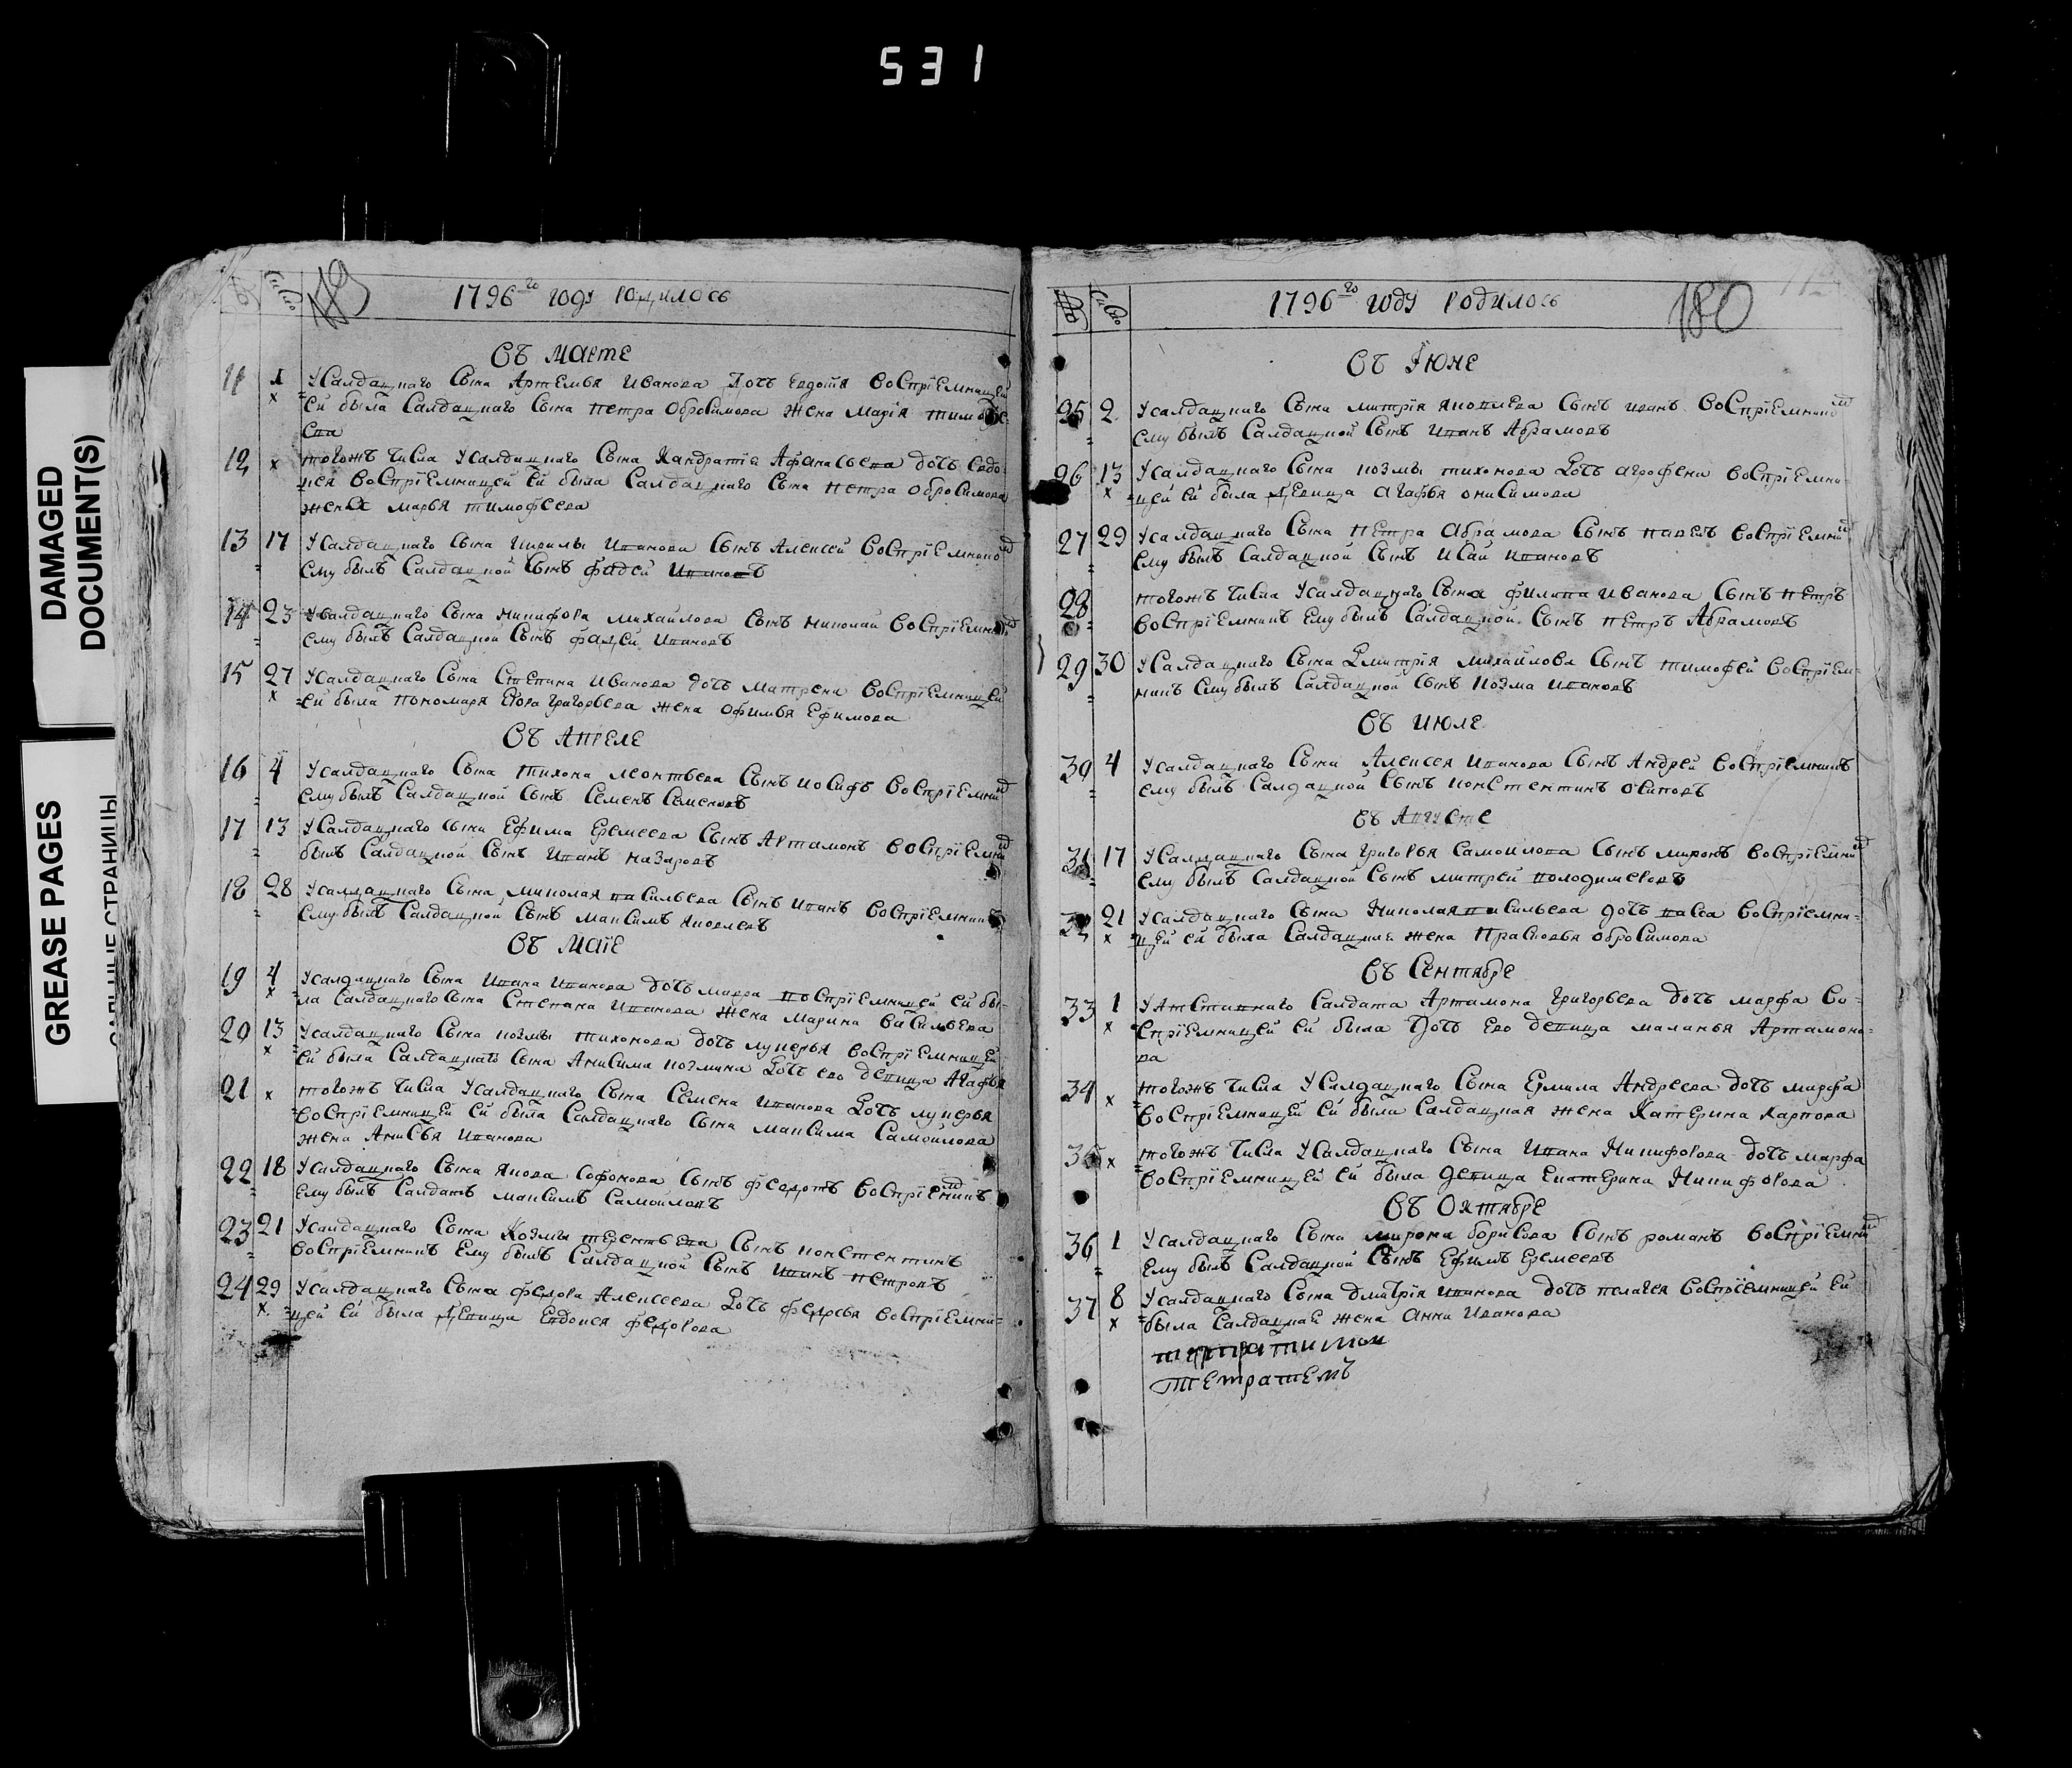 531
DAMAGED
DOCUMENT(S)
GREASE PAGES
1796го году родилось
въ марте
11 1 У Салдацкаго Сына Артемья Иванова дочь Евдотiя воспрiемницей
ей была Салдацкаго Сына Петра Обросимова жена Марiя тимофее-
ева
12 тогожъ числа у салдацкаго Сына Кандратiя Афанасьева дочь Евдо-
кея воспрiемницей ей была Салдацкаго Сына Петра Обросимова
жена марья тимофеева
13 17 У Салдацкаго Сына Кирилы Иванова Сынъ Алексей воспрiемникъ
ему былъ Салдацкой Сынъ фадей Ивановъ
14 23 У Салдацкаго Сына никифора михайлова Сынъ николай воспрiемникъ
ему былъ Салдацкой Сынъ фадей Ивановъ
15 27 У Салдацкаго Сына Степана Иванова дочь матрена воспрiемницей
ей была пономаря Егора григорьева жена офимья Ефимова
въ Апреле
16 4 У салдацкаго Сына тихона леонтьева Сынъ иосифъ воспрiемникъ
ему былъ Салдацкой Сынъ Семенъ Семеновъ
17 13 У Салдацкаго сына Ефима Еремеева Сынъ Артамонъ воспрiемникъ
былъ Салдацкой Сынъ Иванъ назаровъ
18 28 У салдацкаго Сына николая васильева Сынъ Иванъ воспрiемникъ
ему былъ Салдацкой Сынъ максимъ яковлевъ
въ маiе
19 4 У салдацкаго Сына Ивана Иванова дочь мавра воспрiемницей ей бы-
ла Салдацкаго Сына Степана Иванова жена марина васильева
20 13 У салдацкаго Сына козмы тихонова дочь лукерья воспрiемницей
ей была Салдацкаго Сына Анисима козмина дочь ево девица Агафья
21 тогожъ числа У салдацкаго Сына Семена Иванова дочь лукерья
воспрiемницей ей была Салдацкаго Сына максима Самойлова
жена Анисья Иванова
22 18 У салдацкаго Сына якова Софонова Сынъ федотъ воспрiемникъ
ему былъ Салдатъ максимъ Самойловъ
23 21 У салдацкаго Сына козмы терентьева Сынъ констентинъ
воспрiемникъ ему былъ Салдацкой Сынъ Иванъ петровъ
24 29 У салдацкаго Сына федора Алексеева дочь федосья воспрiемни-
цей ей была девица Евдокея федорова
1796го году родилось 180
въ Iюне
25 2 У салдацкаго Сына митрiя яковлева Сынъ иванъ воспрiемникъ
ему былъ Салдацкой Сынъ Иванъ Абрамовъ
26 13 У салдацкаго Сына козмы тихонова дочь агрофена воспрiемни-
цей ей была девица агафья онисимова
27 29 У салдацкаго Сына петра абрамова Сынъ павелъ воспрiемникъ
ему былъ Салдацкой Сынъ Исай Ивановъ
28 тогожъ числа У салдацкаго Сына филипа Иванова Сынъ петръ
воспрiемникъ ему былъ Салдацкой Сынъ петръ Абрамовъ
29 30 У Салдацкаго Сына дмитрiя михайлова Сынъ тимофей воспрiем-
никъ ему былъ Салдацкой Сынъ козма Ивановъ
въ июле
30 4 У салдацкаго Сына Алексея Иванова Сынъ Андрей воспрiемникъ
ему былъ Салдацкой Сынъ констентинъ осиповъ
въ Августе
31 17 У Салдацкаго Сына григорья Самойлова Сынъ миронъ воспрiемникъ
ему былъ Салдацкой Сынъ митрей володимеровъ
32 21 У салдацкаго Сына николая васильева дочь васса воспрiемни-
цей ей была Салдацкая жена прасковья обросимова
въ Сентябре
33 1 У Атставнаго Салдата Артамона григорьева дочь марфа во-
спрiемницей ей была дочь ево девица маланья Артамоно-
ва
34 тогожъ числа У Салдацкаго Сына Ермила Андреева дочь марфа
воспрiемницей ей была Салдацкая жена Катерина карпова
35 тогожъ числа У Салдацкаго Сына Ивана Никифорова дочь марфа
воспрiемницей ей была девица Екатерина Никифорова
въ Октябре
36 1 У салдацкаго Сына мирона борисова Сынъ романъ воспрiемникъ
ему былъ Салдацкой Сынъ Ефимъ Еремеевъ
37 8 У салдацкаго Сына дмитрiя Иванова дочь пелагея воспрiемницей ей
была Салдацкая жена анна Иванова